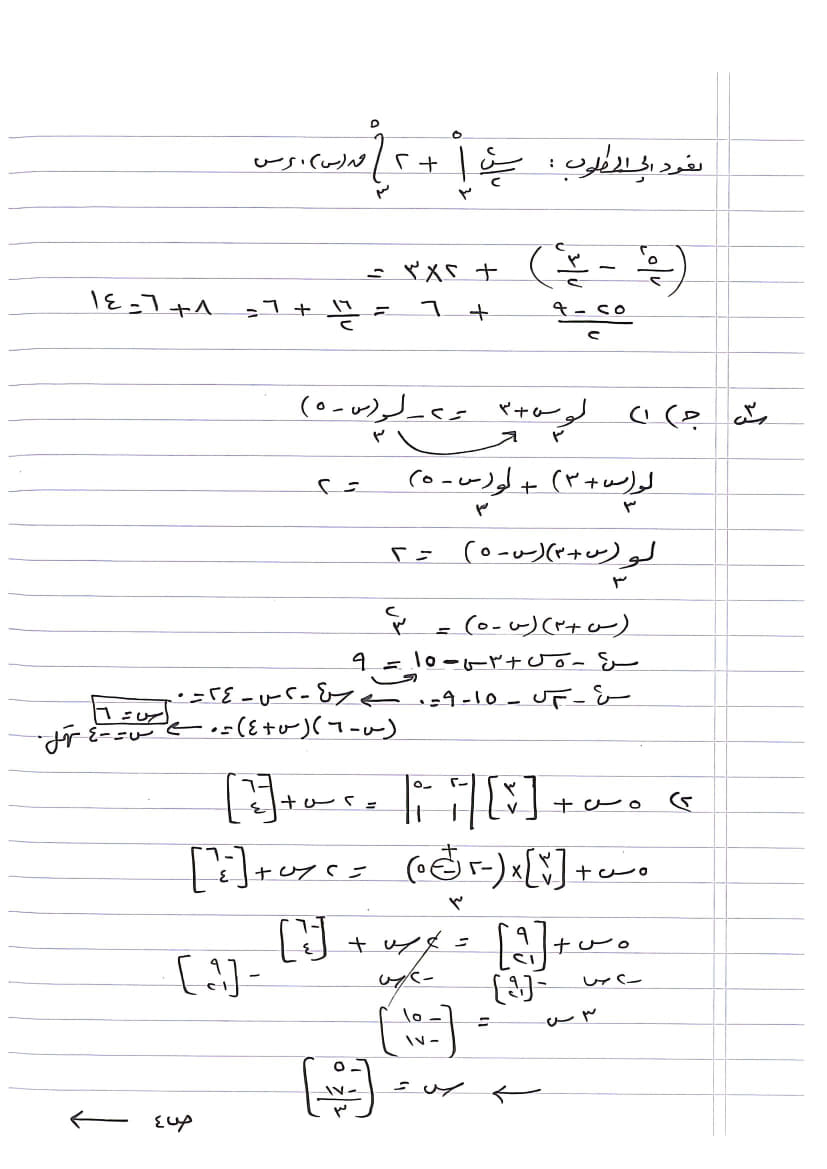 نعود إلى المطلوب : س²/٢ |₃⁵ + ٢ ∫₃⁵ ق(س) . ءس
(٥²/٢ − ٣²/٢) + ٢×٣ =
(٢٥ − ٩)/٢ + ٦ = ١٦/٢ + ٦ = ٨ + ٦ = ١٤
س٣ ج) ١) لو₃ س+٣ = ٢ − لو₃ (س−٥)
لو₃ (س+٣) + لو₃ (س−٥) = ٢
لو₃ (س+٣)(س−٥) = ٢
(س+٣)(س−٥) = ٣²
س² − ٥س + ٣س − ١٥ = ٩
س² − ٢س − ١٥ − ٩ = ٠ ← س² − ٢س − ٢٤ = ٠
(س−٦)(س+٤) = ٠ ← س = ٦
س = −٤ تهمل.
٢) ٥س + [٣ ٧] |−٢ −٥ ١ ١| = ٢س + [−٦ ٤]
٥س + [٣ ٧] × (−٢ − −٥) = ٢س + [−٦ ٤]
+
٣
٥س + [٩ ٢١] = ٢س + [−٦ ٤]
−٢س − [٩ ٢١] −٢س − [٩ ٢١]
٣س = [−١٥ −١٧]
← س = [−٥ −١٧/٣]
ص٤ ←